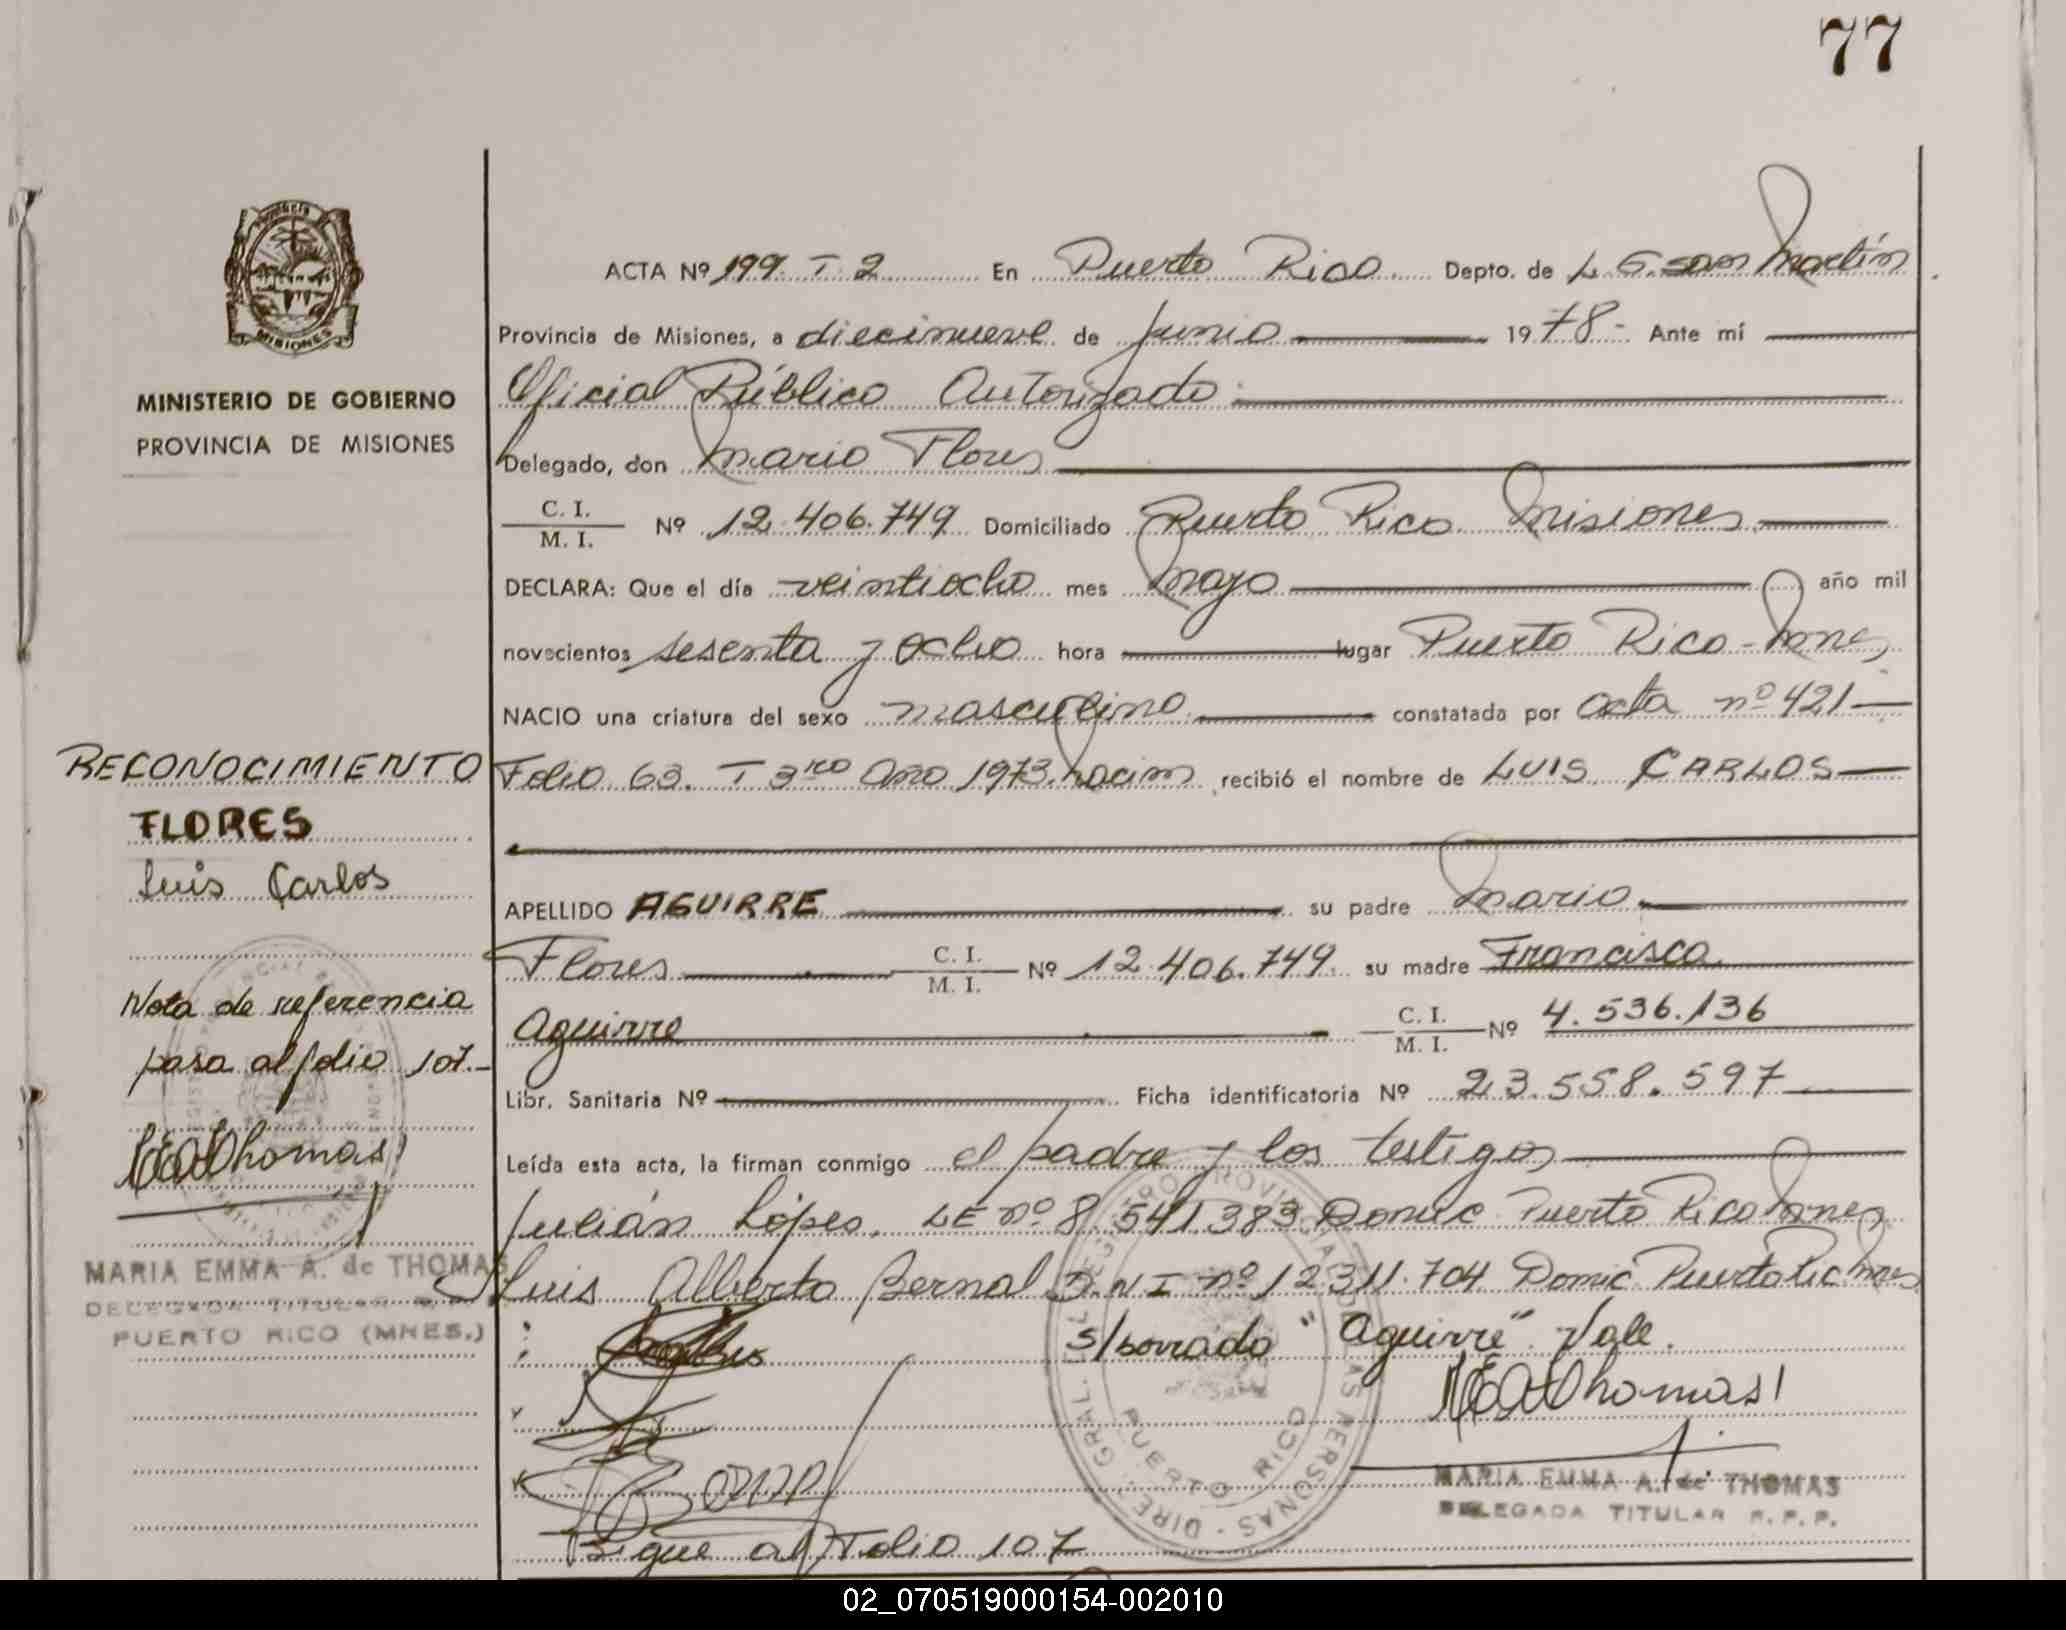 77
MISIONES
MINISTERIO DE GOBIERNO
PROVINCIA DE MISIONES
ACTA Nº 199. T 2 En Puerto Rico Depto. de L. G. San Martín
Provincia de Misiones, a diecinueve de junio 1978.- Ante mí
Oficial Público Autorizado
Delegado, don Mario Flores
C. I.
M. I. Nº 12.406.749 Domiciliado Puerto Rico Misiones
DECLARA: Que el día veintiocho mes Mayo año mil
novecientos sesenta y ocho hora lugar Puerto Rico - Mnes
NACIO una criatura del sexo masculino constatada por acta nº 421
Folio 63. T 3ro Año 1973. Nacim recibió el nombre de LUIS CARLOS
APELLIDO AGUIRRE su padre Mario
Flores C. I. M. I. Nº 12.406.749. su madre Francisca
Aguirre C. I. M. I. Nº 4.536.136
Libr. Sanitaria Nº Ficha identificatoria Nº 23.558.597
Leída esta acta, la firman conmigo el padre y los testigos
Julián Lópes. LE nº 8.541383 Domic Puerto Rico Mnes
Luis Alberto Bernal D.N I nº 12311.704 Domic Puerto Ric Mnes
s/borrado "Aguirre" Vale.
MEAdThomas
MARIA EMMA A. de THOMAS
DELEGADA TITULAR R. P. P.
Sigue al Folio 107
RECONOCIMIENTO
FLORES
Luis Carlos
Nota de referencia
pasa al folio 107.-
MEAdThomas
MARIA EMMA A. de THOMAS
DELEGADA TITULAR
PUERTO RICO (MNES.)
PUERTO RICO
02_070519000154-002010